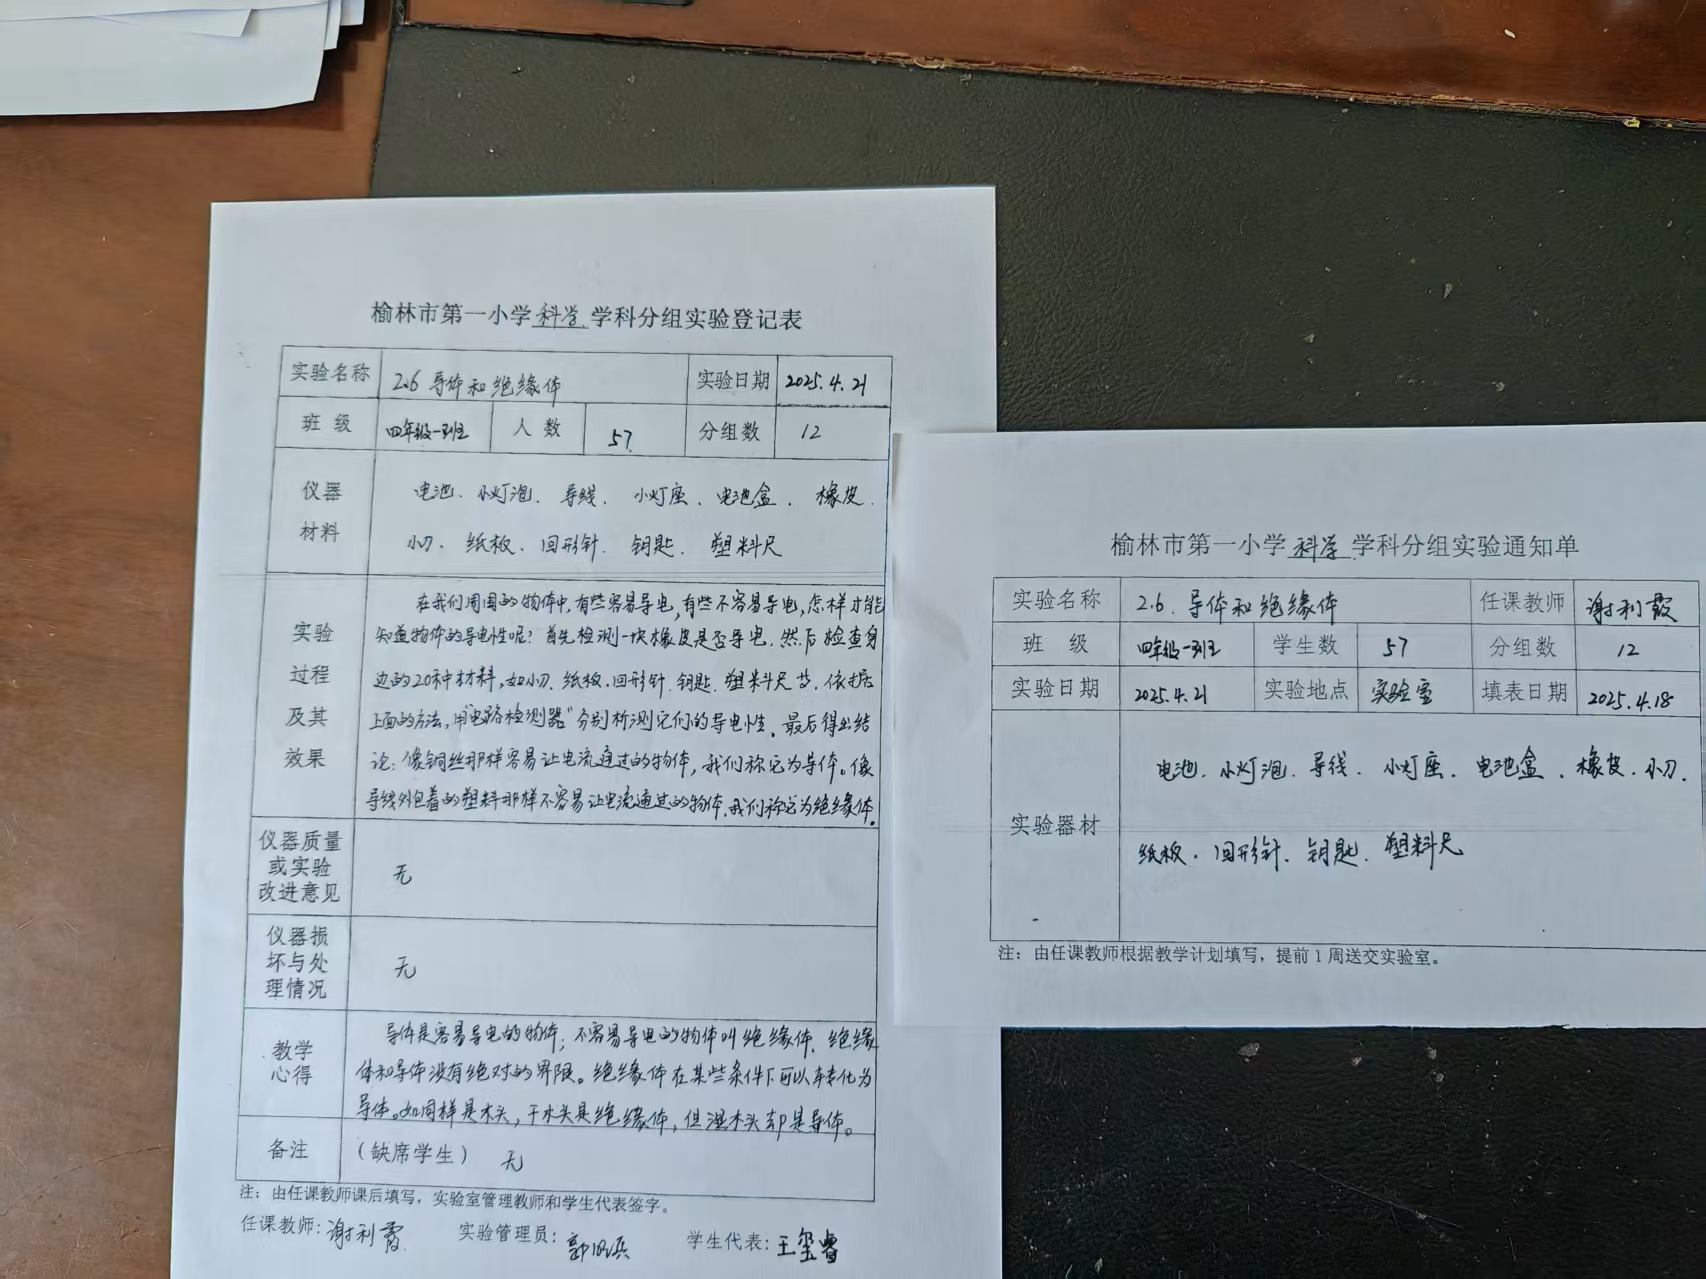 榆林市第一小学科学学科分组实验登记表
实验名称 2.6 导体和绝缘体 实验日期 2025.4.21
班 级 四年级一班 人 数 57 分组数 12
仪器材料
电池、小灯泡、导线、小灯座、电池盒、橡皮、
小刀、纸板、回形针、钥匙、塑料尺
实验过程及其效果
在我们周围的物体中,有些容易导电,有些不容易导电,怎样才能
知道物体的导电性呢?首先检测一块橡皮是否导电,然后检查身
边的20种材料,如小刀、纸板、回形针、钥匙、塑料尺等,依据
上面的方法,用"电路检测器"分别析测它们的导电性。最后得出结
论:像铜丝那样容易让电流通过的物体,我们称它为导体。像
导线外包着的塑料那样不容易让电流通过的物体,我们称它为绝缘体。
仪器质量或实验改进意见 无
仪器损坏与处理情况 无
教学心得
导体是容易导电的物体;不容易导电的物体叫绝缘体、绝缘
体和导体没有绝对的界限。绝缘体在某些条件下可以转化为
导体。如同样是木头,干木头是绝缘体,但湿木头却是导体。
备注 (缺席学生) 无
注:由任课教师课后填写,实验室管理教师和学生代表签字。
任课教师:谢利霞 实验管理员:郭 学生代表:王玺睿
榆林市第一小学科学学科分组实验通知单
实验名称 2.6.导体和绝缘体 任课教师 谢利霞
班 级 四年级一班 学生数 57 分组数 12
实验日期 2025.4.21 实验地点 实验室 填表日期 2025.4.18
实验器材
电池、小灯泡、导线、小灯座、电池盒、橡皮、小刀、
纸板、回形针、钥匙、塑料尺
注:由任课教师根据教学计划填写,提前1周送交实验室。